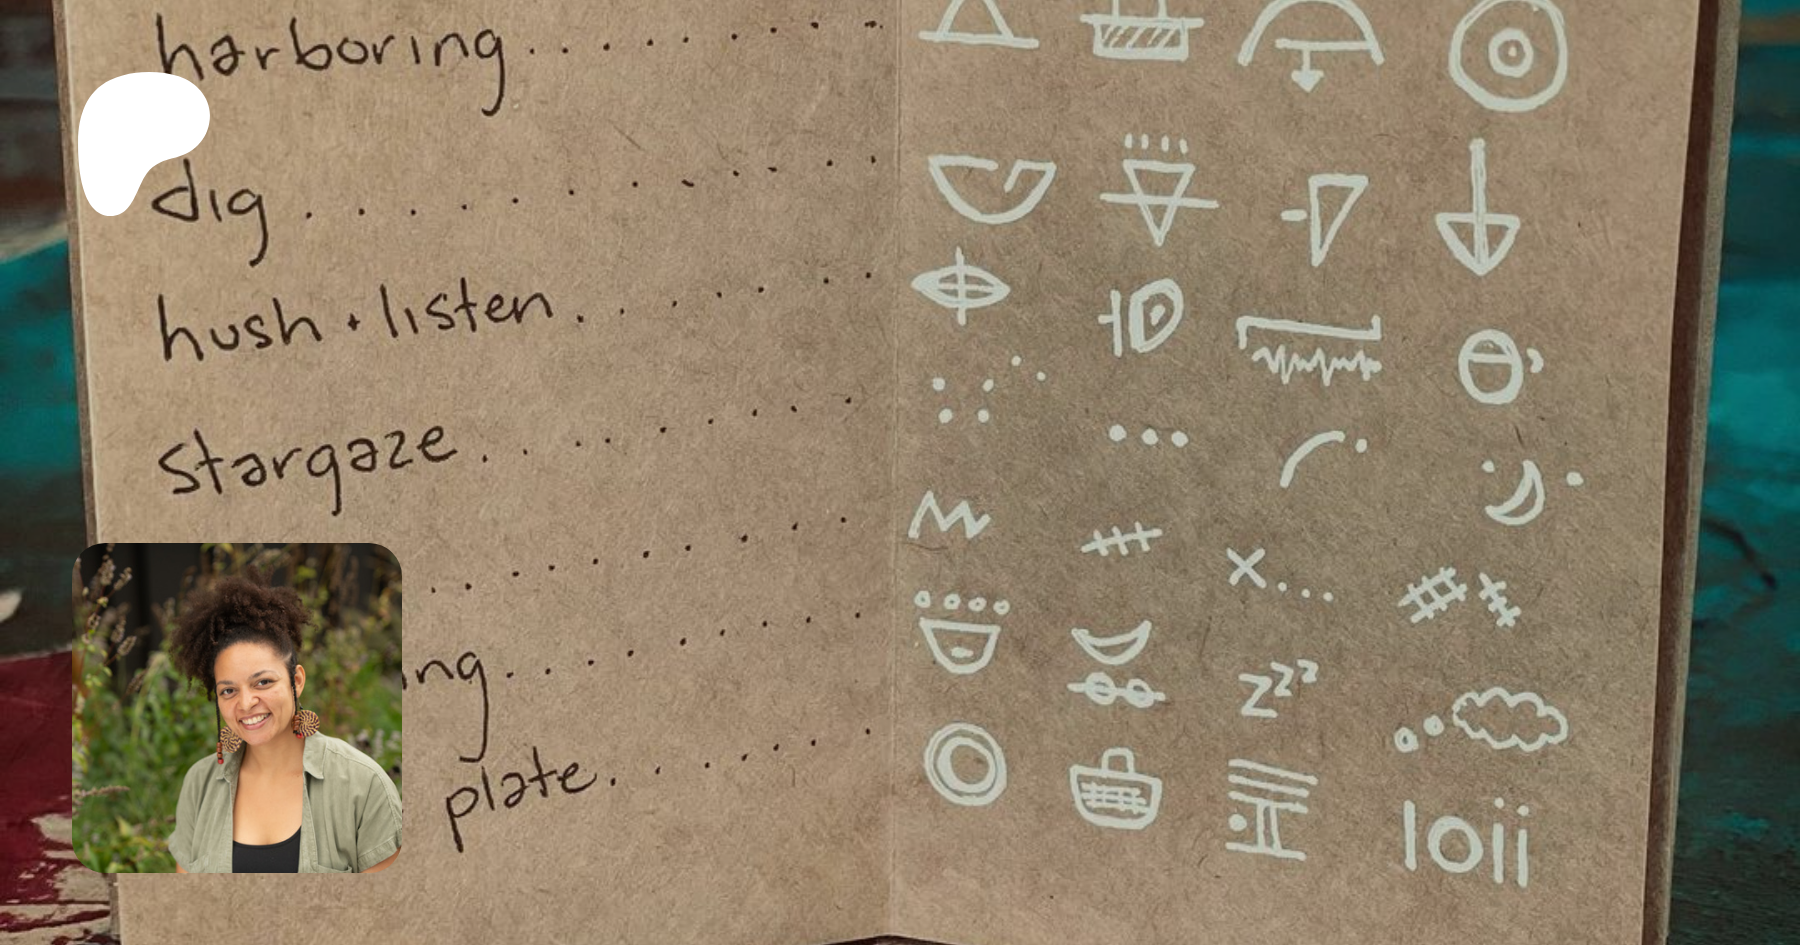 harboring
dig
hush + listen
stargaze
ing
plate
zzz